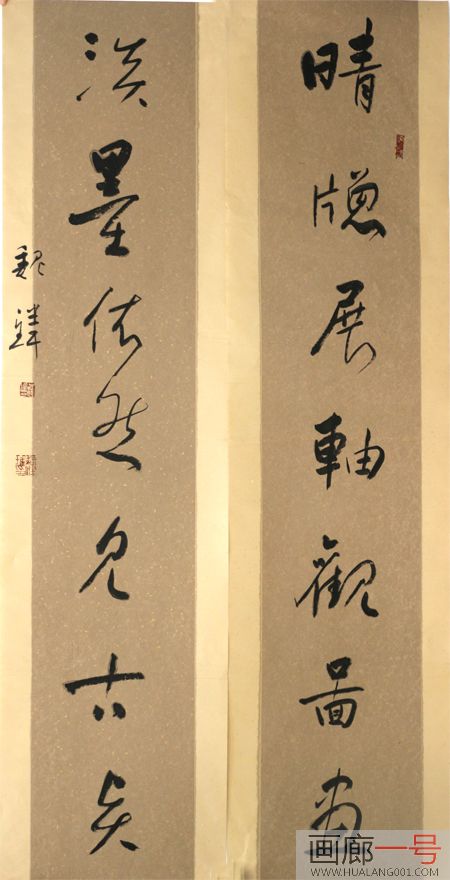 晴牕展軸觀圖畫
淡墨依然見古
魏
画廊一号
WWW.HUALANG001.COM